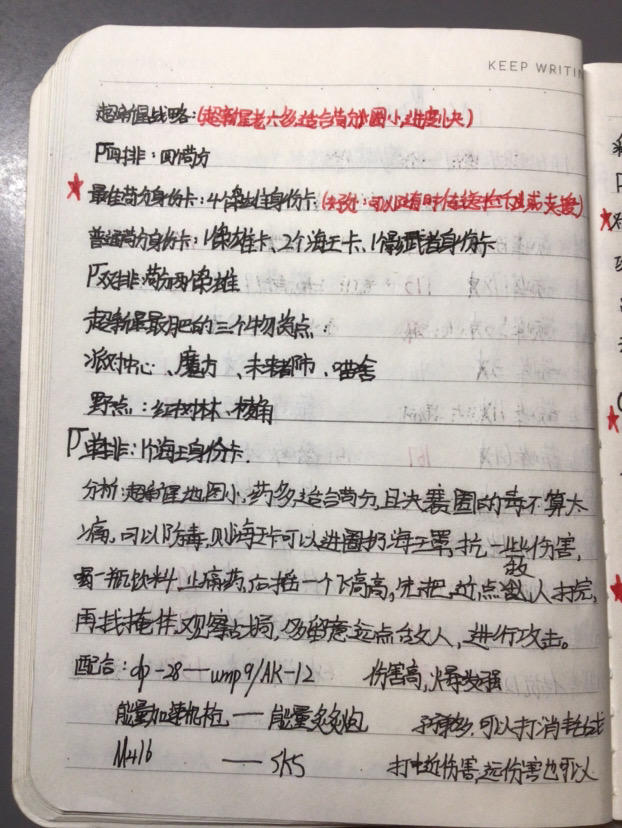 KEEP WRITIN
超新星战略:(超新星老六多,适合苟分,图小,进度快)
四排:四苟分
最佳苟分身份卡:4个身份卡(可以随时支援)
普通苟分身份卡:1雄卡、2个海王卡、1个影武者身份卡
双排:苟分两雄
超新星最肥的三个物资点:
派对中心、魔方、未来都市、喵舍
野点:红树林、梭角
单排:1个海王身份卡.
分析:超新星地图小,药多,适合苟分,且决赛圈的毒不算太
痛,可以防毒,则海王卡可以进圈扔海王罩,抗一些伤害,
喝一瓶饮料,止痛药,后插一个飞高高,先把近点敌人打完,
再找掩体,观察战局,仍留意远点敌人,进行攻击。
配合:dp-28—ump9/AK-12 伤害高,爆发强
能量加速机枪——能量炮 子弹多,可以打消耗战
M416 ——SKS 打中近伤害,远伤害也可以